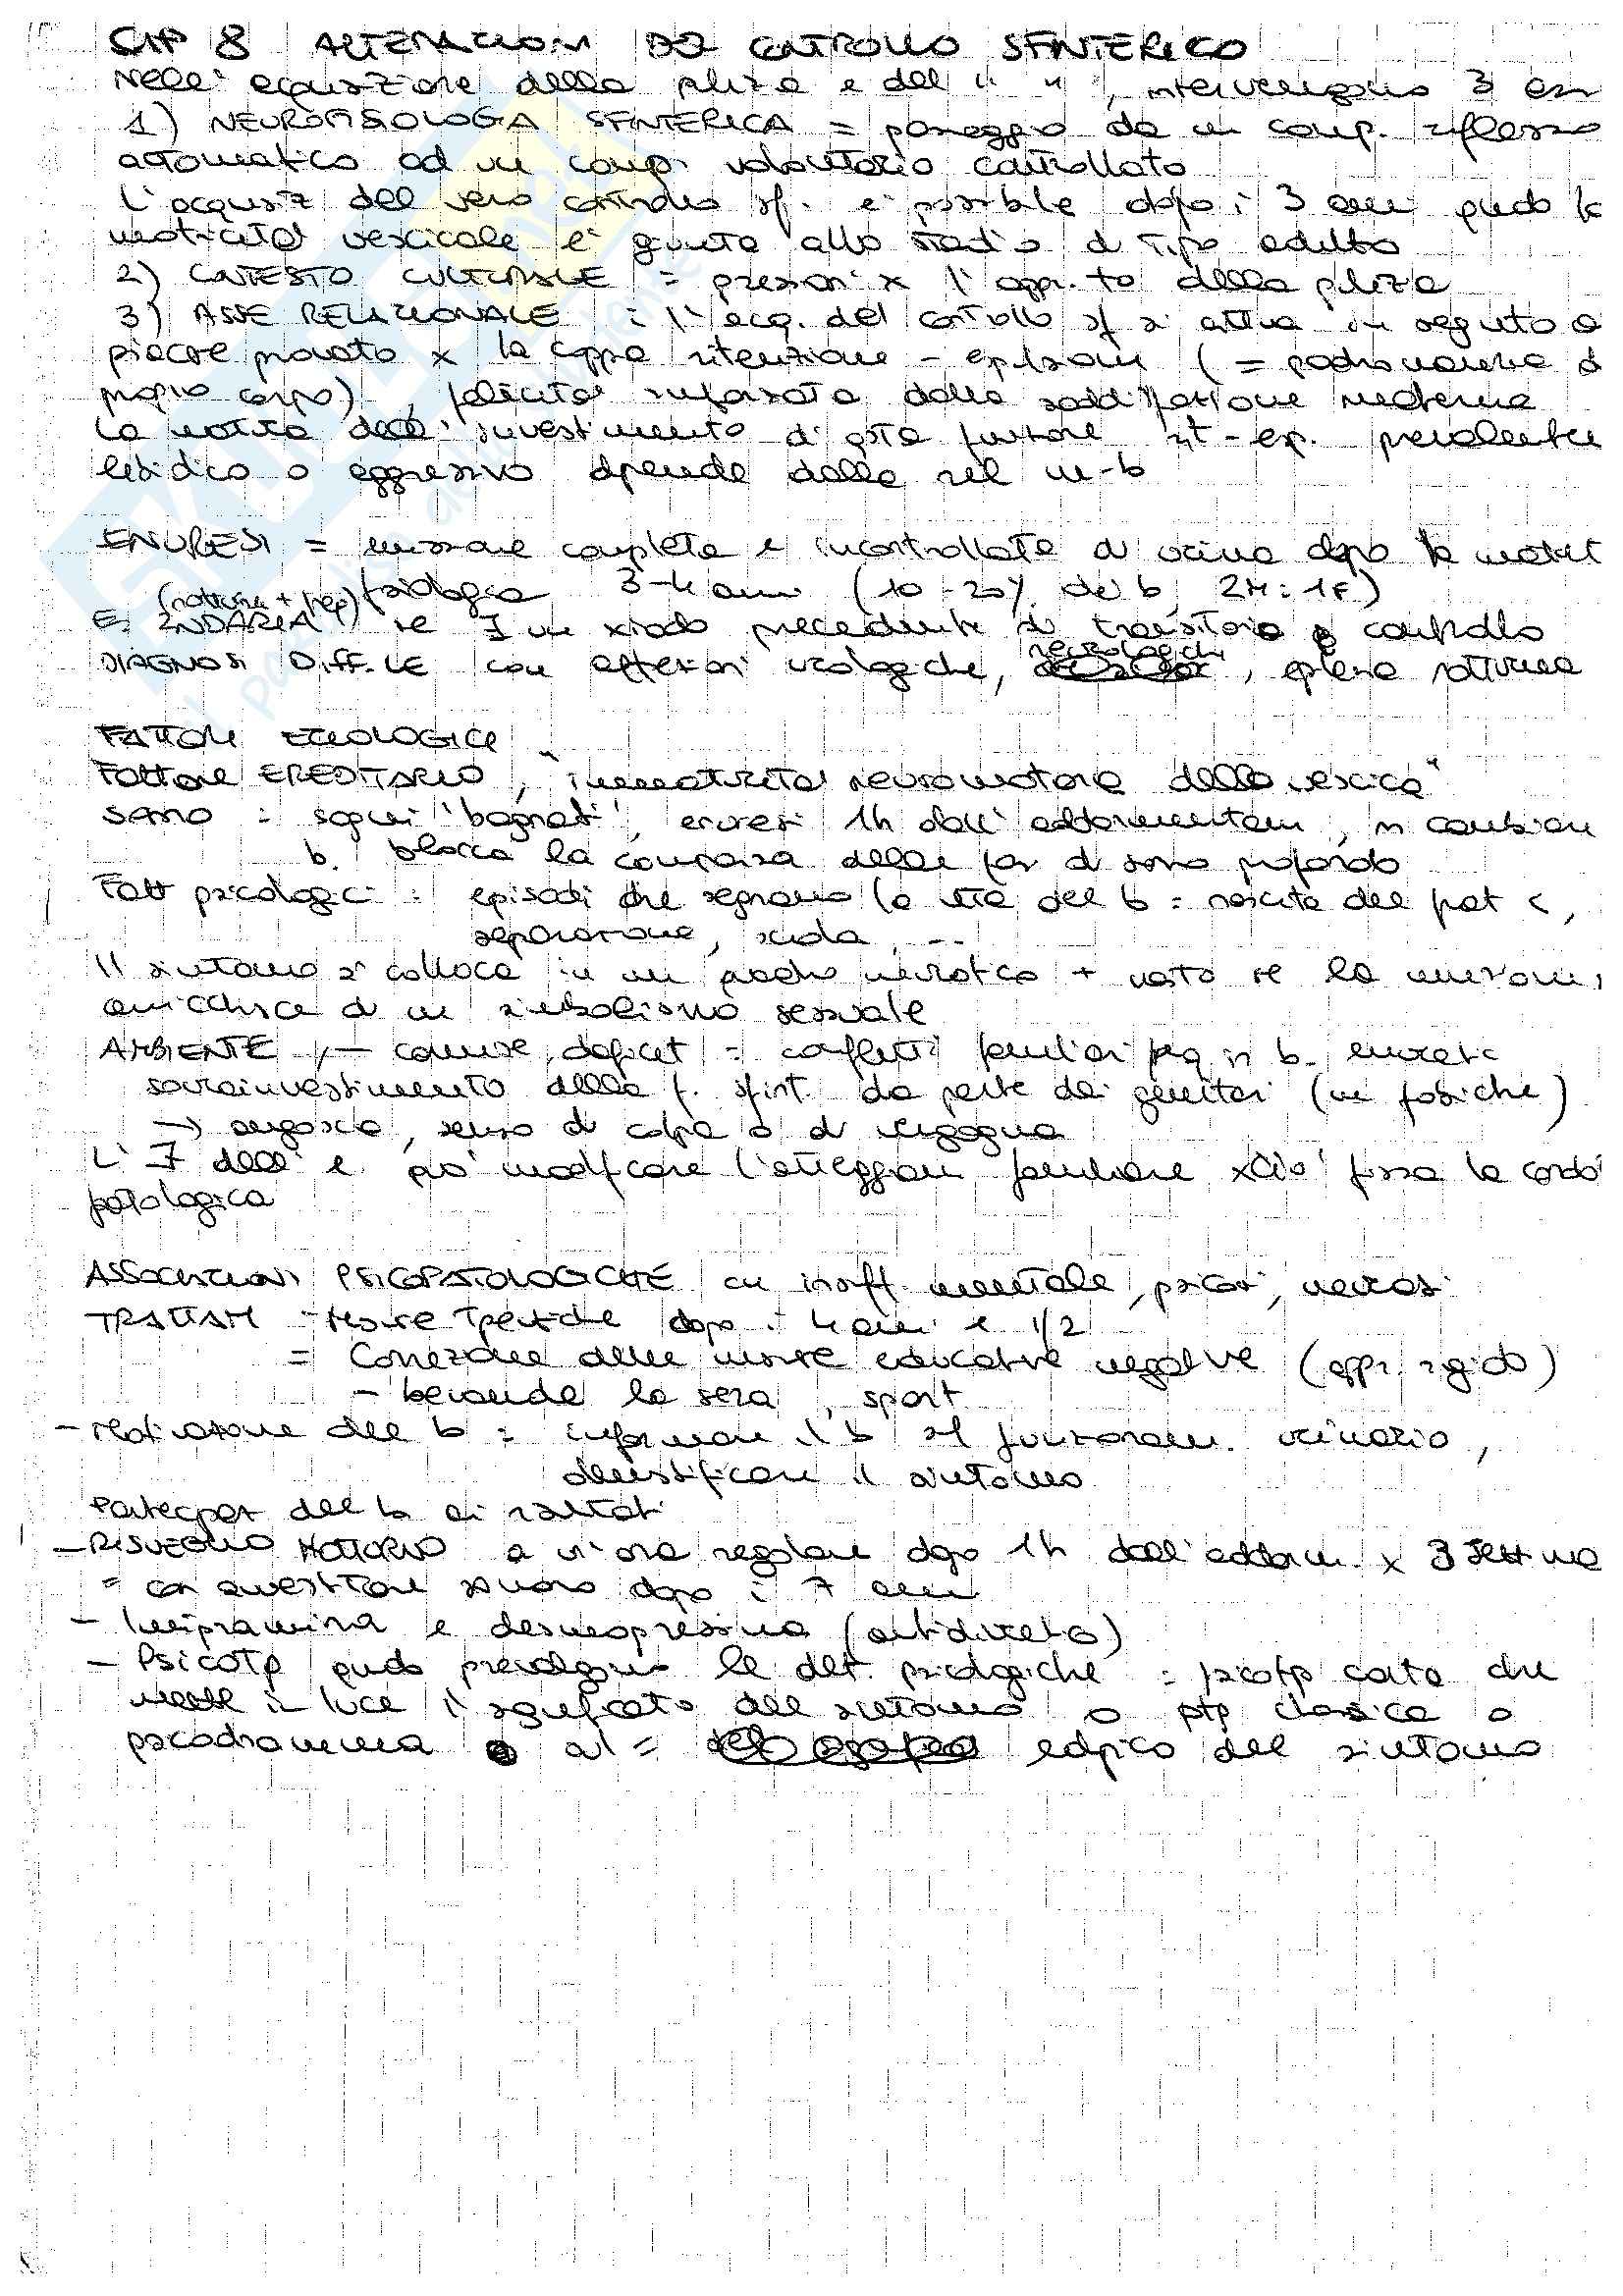 CAP 8 ALTERAZIONI DEL CONTROLLO SFINTERICO
Nell' acquisizione della pulizia e del " " , intervengono 3
1) NEUROFISIOLOGIA SFINTERICA = passaggio da un comp. riflesso
automatico ad un comp. volontario controllato
L'acquisiz del vero controllo sf. e' possibile dopo i 3 anni qndo la
motricità vescicale e' giunta allo stadio di tipo adulto
2) CONTESTO CULTURALE = pressioni x l' appr.to della pulizia
3) ASSE RELAZIONALE : l' acq. del controllo sf si attua in seguito a
piacere provato x la coppia ritenzione - espulsione ( = padronanza d
proprio corpo) , felicità rinforzata dalla soddisfazione materna
La natura dell' investimento di qsta funzione rit - esp.
libidico o aggressivo dipende dalla rel m-b
ENURESI = emissione completa e incontrollata di urina dopo la
fisiologica 3-4 anni (10-20% dei b, 2M : 1F)
(notturna + freq)
E. 2NDARIA se ∃ un xiodo precedente di transitorio controllo
DIAGNOSI DIFF.LE con affezioni urologiche, neurologiche , epilessia notturna
FATTORI EZIOLOGICI
Fattore EREDITARIO , "immaturità neuromotoria della vescica"
sonno : sogni 'bagnati', enuresi 1h dall' addormentam , in
b. blocca la comparsa delle fasi di sonno profondo
Fatt psicologici : episodi che segnano la vita del b = nascita del frat <,
separazione, scuola, ...
Il sintomo si colloca in un quadro nevrotico + vasto se la
arricchisce di un simbolismo sessuale
AMBIENTE , - carenze, deficit = conflitti familiari freq in b. enuretici
sovrainvestimento della f. sfint. da parte dei genitori (m fobiche)
→ angoscia, senso di colpa o di vergogna
L' ∃ dell' e. può modificare l' atteggiam familiare xciò fissa la
patologica
ASSOCIAZIONI PSICOPATOLOGICHE con insuff. mentale, psicosi, nevrosi
TRATTAM - Misure Tpeutiche dopo i 4 anni e 1/2
= Correzione delle misure educative negative (appr. rigido)
- bevande la sera , sport
- Motivazione del b = informare il b sul funzionam. urinario,
demistificare il sintomo
Partecipaz del b ai risultati
- RISVEGLIO NOTTURNO a un'ora regolare dopo 1h dall'addorm. x 3 settimane
= con avvertitore sonoro dopo i 7 anni
- Imipramina e desmopressina (antidiuretico)
- PsicoTp qndo prevalgono le det. psicologiche = psicotp corta che
mette in luce il significato del sintomo o ptp classica o
psicodramma sul = edipico del sintomo